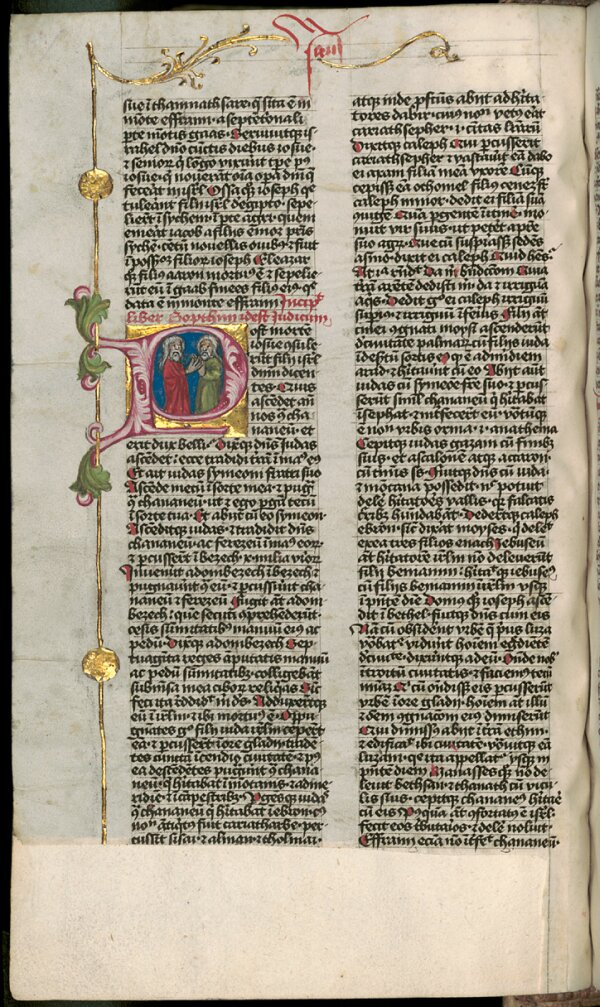 sue ī thamnath sare · q̄ sita ē in
mōte effraim · a septētrionali
pte mōtis gaas · Seruiuitq̄ is
rahel dn̄o cūctis diebus iosue ·
⁊ seniorꝝ q̄ lōgo vixerūt tp̄e pꝰ
iosue · q̄ nouerāt oīa opa dn̄i q̄
fecerat in isrl̄ · Ossa q̄ꝫ ioseph q̄
tulerāt filij isrl̄ de egipto · sepe
lierūt ī sychem · ī pte agri · quem
emerat iacob a filijs emor pr̄is
syche · cētū nouellis ouibꝰ · ⁊ fuit
ī poss̄oꝫ filiorꝝ ioseph · Eleazar
q̄ꝫ filiꝰ aaron mortuꝰ ē · ⁊ sepelie
rūt eū ī gaab finees filij eiꝰ · q̄
data ē in monte effraim · Incipit
liber Sopthim · idest Judicum
Post mortē
iosue · 9sule
rūt filij isrl̄
dn̄m dicen
tes · Quis
ascēdet añ
nos 9̄ cha
naneū · et
erit dux belli · Dixitq̄ dn̄s Iudas
ascēdet · ecce tradidi trām ī maꝰ eiꝰ
Et ait iudas symeoni fratri suo
Ascēde mecū ī sorte mea · ⁊ pugna
9̄ chananeū · ut ⁊ ego pgā tecū
ī sorte tua · Et abijt cū eo symeon ·
Ascēditq̄ iudas · ⁊ tradidit dn̄s
chananeū · ac ferezeū ī maꝰ eorꝝ
⁊ pcusserūt ī bezech · x · milia virorꝝ
Inuenerūt adombezech ī bezech ⁊
pugnauerūt 9̄ eū · ⁊ pcusserūt cha
naneū ⁊ ferezeū · Fugit āt adom
bezech · quē secuti 9prehēderūt ·
cesis sūmitatibꝰ manuū eiꝰ ac
pedū · Dixitq̄ adombezech · Sep
tuagīta reges aputatis manuū
ac pedū sūmitatibꝰ · colligebāt
sub mēsa mea ciborꝝ reliqͥas · Sic
feci ita reddidit mͥ dꝰ · Adduxerūtq̄
eū ī irl̄m · ⁊ ibi mortuꝰ ē · Oppu
gnātes gͦ filij iuda irl̄m · ceperūt
eā · ⁊ pcusserūt ī ore gladij · tradē
tes cūctā īcēdio ciuitatē · ⁊ pꝰ
ea descēdētes pugnauerūt 9̄ chana
neū · q̄ hitabat ī mōtanis · ⁊ ad me
ridiē · ⁊ ī capestribꝰ · Pgēsq̄ iudas
9̄ chananeū q̄ hitabat ī ebron · cuiꝰ
nom̄ ātiqͥtꝰ fuit cariatharbe · per
cussit sisai · ⁊ aiman · ⁊ tholmai ·
atq̄ inde pfctūs abijt ad hīta
tores dabir · cuiꝰ nom̄ vetꝰ erāt
cariathsepher · i · ciuitas lrārū
Dixitq̄ caleph · Qui pcusserit
cariathsepher · ⁊ vastauerit eā · dabo
ei axam filiā meā vxorē · Cūq̄
cepisset eā othoniel filiꝰ cenez fr̄
caleph minor · dedit ei filiā suā
9iugē · Quā pgentē ī itīne · mo
nuit vir suus · ut peteret a prē
suo agrū · Que cū suspirass̄ sedēs
asino · dixit ei caleph · Quid hēs ·
At illa rn̄dit · Da m̄ bn̄dictōem · Quia
trā arētē dedisti mͥ · da ⁊ irriguā
aqͥs · Dedit gͦ ei caleph irriguū
supiꝰ · ⁊ irriguū īferiꝰ · Filij āt
cinei 9gnati moysi ascenderūt
d̄ ciuitate palmarꝝ cū filijs iuda
ī desertū sortis eiꝰ · q̄ ē ad midiem
arad · ⁊ hītauerūt cū eo · Abijt aūt
iudas cū symeoe frē suo · ⁊ pcus
serūt siml̄ chananeū q̄ hitabat
ī sephat · ⁊ interfecerūt eū · Votūq̄
ē nom̄ vrbis orma · i · anathema
Cepitq̄ iudas gazam cū finibꝫ
suis · et ascalonē atq̄ accaron ·
cū tīnis ss · Fuitq̄ dn̄s cū iuda ·
⁊ mōtana possedit · nec potuit
delē hitatores vallis · q̄ falcatis
cribꝫ hūdabant · Dederūtq̄ caleph
ebron · sic dixat moyses · q̄ deleuit
ex ea tres filios enach · Jebuseū
āt hitatorē irl̄m nō deleuerūt
filij beniamin · ⁊ hitauit iebuseꝰ
cū filijs beniamin ī irl̄m vsq̄
ī pn̄tē diē · Domꝰ q̄ꝫ ioseph ascē
dit ī bethel · fuitq̄ dn̄s cum eis
Nā cū obsiderēt vrbē · q̄ pꝰus luza
vocabatur · viderūt hoīem egrediētē
d̄ ciuitate · dixerūtq̄ ad eū · Ostende nob̄
ītroitū ciuitatis · ⁊ faciemꝰ tecū
mīaꝫ · Qͥ cū ondisset eis pcusserūt
vrbē ī ore gladij · hoīem āt illū
⁊ oēm 9gnacoēm eiꝰ dimiserūt
Qui dimissꝰ abijt ī trā etthim ·
⁊ edificauit ibi ciuitatē · vocauitq̄ eā
luzam · que ita appellatur vsq̄ in
pn̄tē diem · Manasses q̄ꝫ nō de
leuit bethsan · ⁊ thanach cū vicu
lis suis · cepitq̄ chananeꝰ hitare
cū eis · Postqua āt 9fortatꝰ ē isrl̄ ·
fecit eos tributarios · ⁊ delē noluit ·
Effraim eciā nō īterfecit chananeū ·